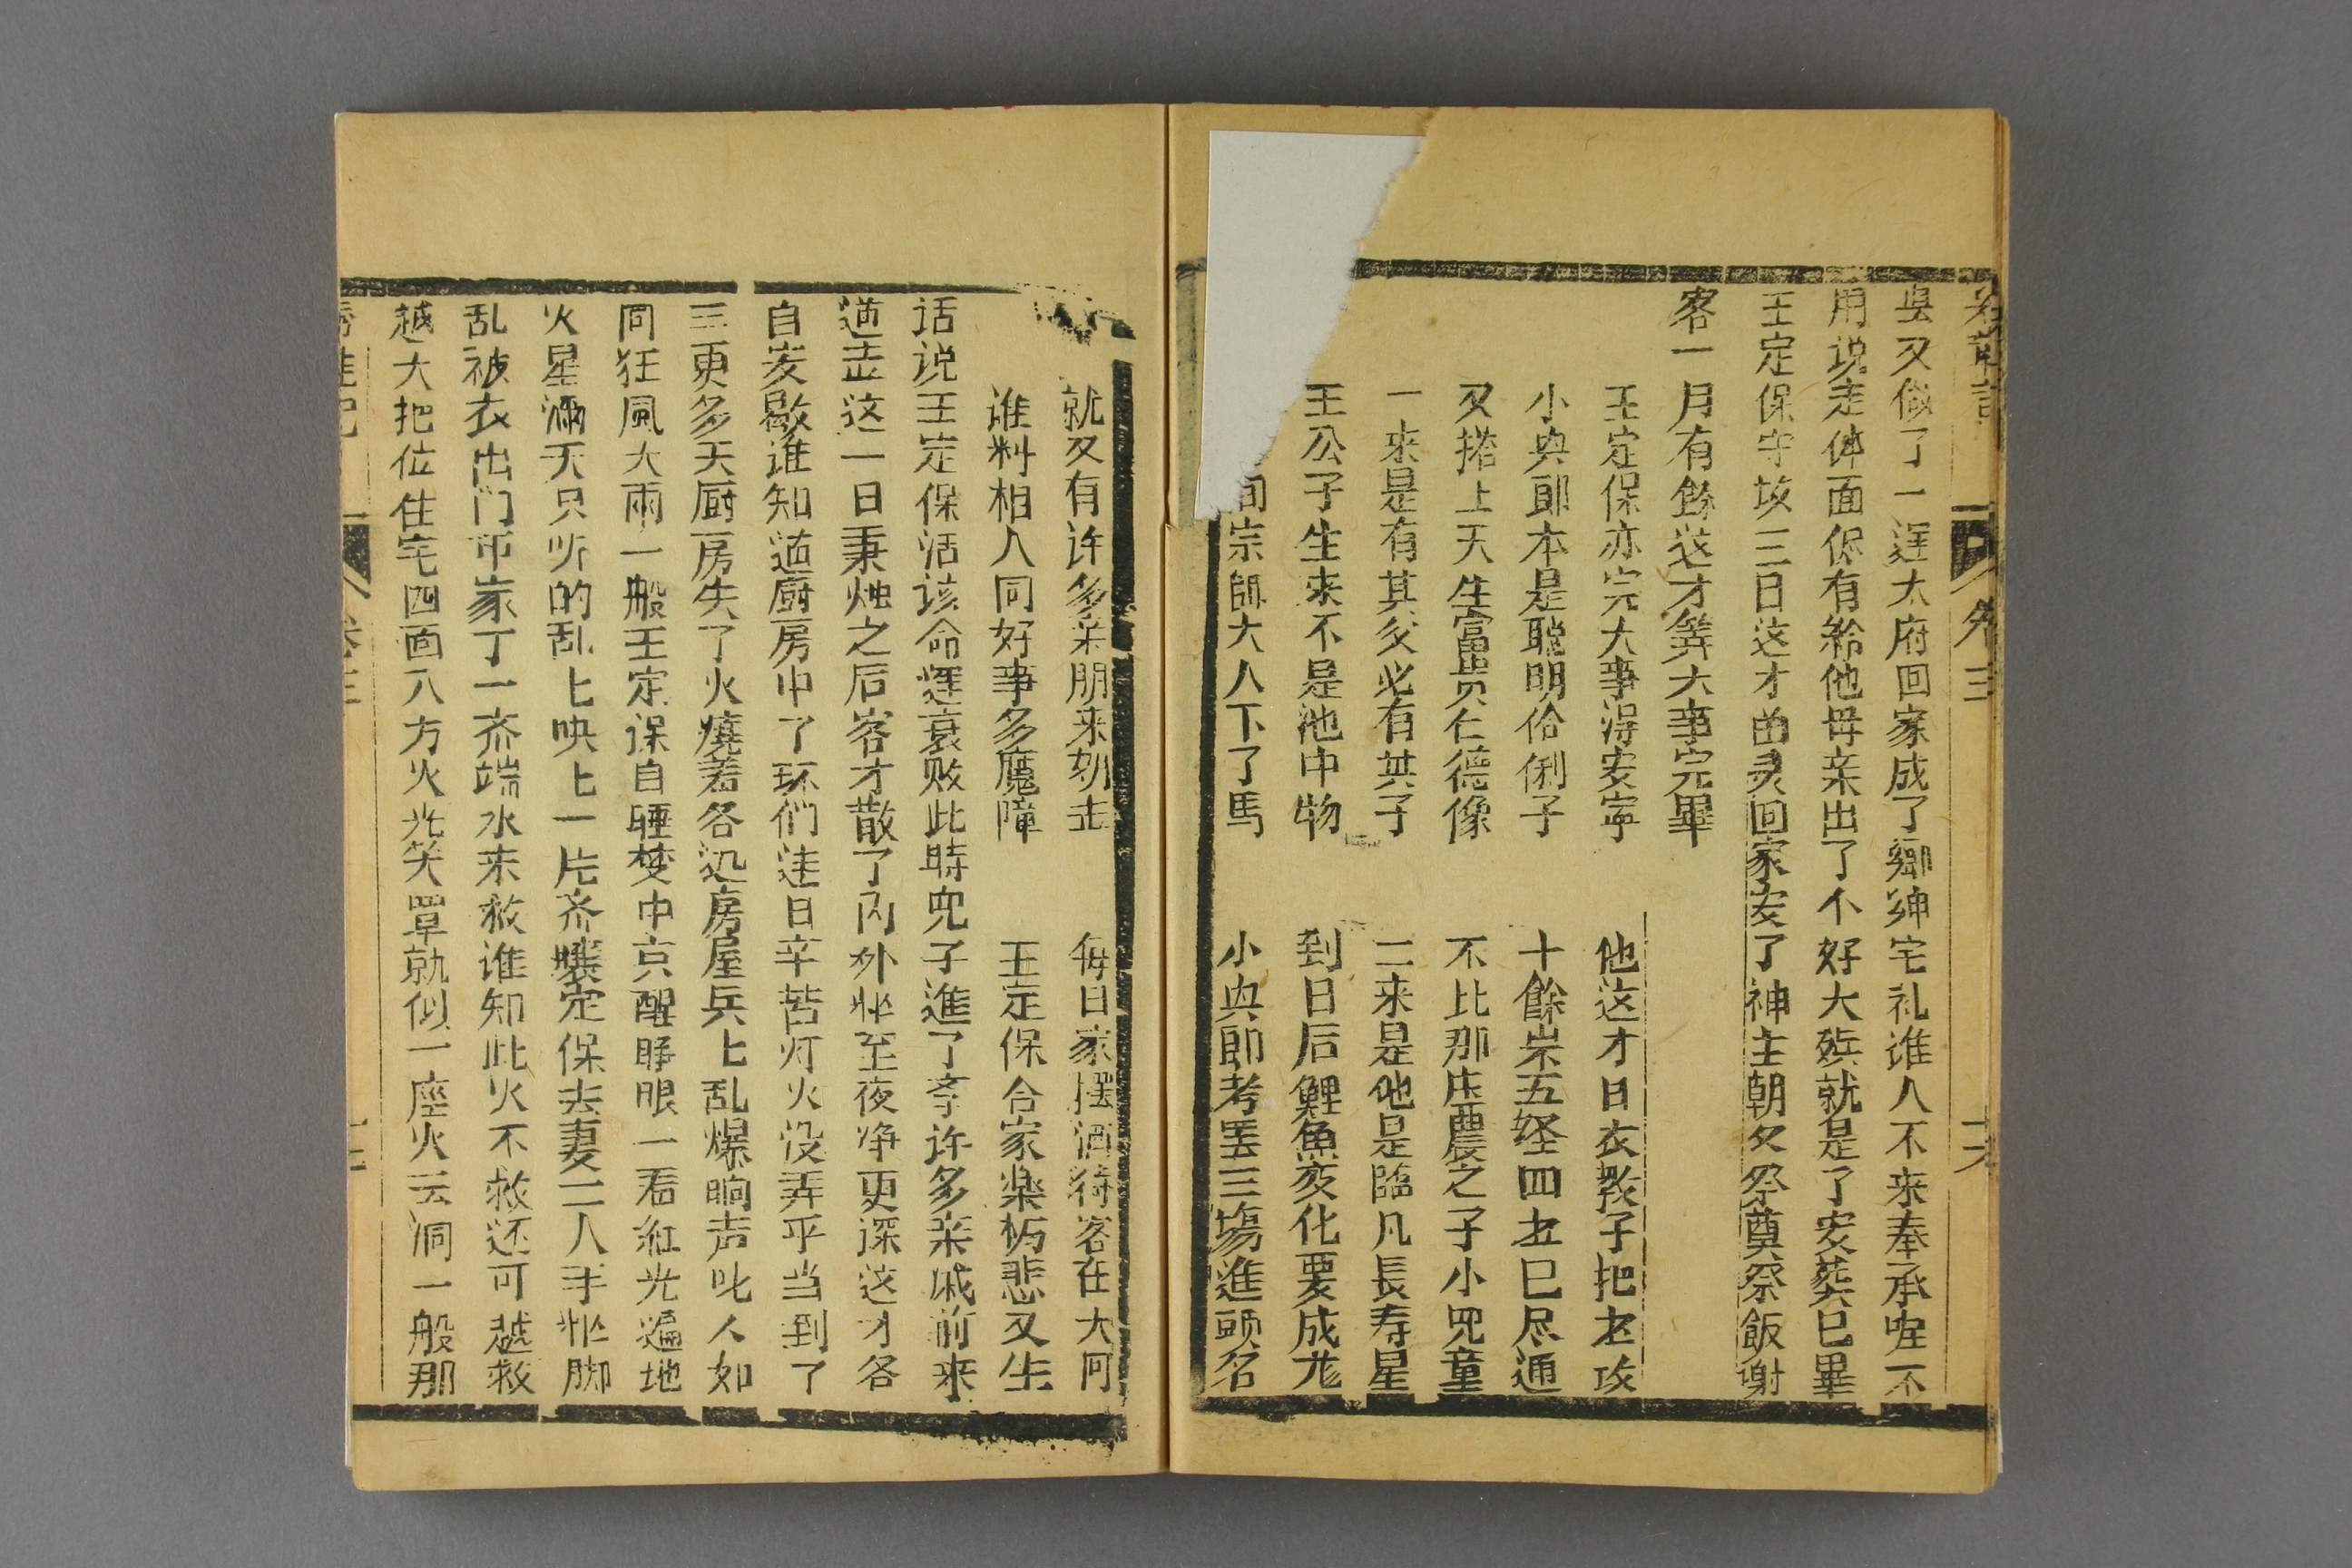 卷三
吳又做了一運太府回家成了鄉紳宅礼谁人不来奉承咱不
用说走体面保有給他母亲出了个好大殡就是了安葬已畢
王定保守坟三日这才由灵回家安了神主朝夕祭奠祭飯谢
客一月有餘这才算大事完畢
王定保亦完大事淂安寕 他这才日衣教子把书攻
小典郎本是聪明伶俐子 十餘岁五经四书已尽通
又搭上天生富贵仁德像 不比那庄農之子小児童
一来是有其父必有其子 二来是他是臨凡長寿星
王公子生来不是池中物 到日后鯉魚变化要成龙
宗師大人下了馬 小典郎考罢三場進頭名
就又有许多亲朋来 去 每日家摆酒待客在大
谁料相人同好事多魔障 王定保合家樂 悲又生
话说王定保活该命運衰败此時児子進了学许多亲戚前来
道 这一日秉烛之后客才散了内外 至夜净更深这才各
自安歇谁知道厨房中了环们連日辛苦灯火没弄乎当到了
三更多天厨房失了火燒着各处房屋兵上乱爆响声叱人如
同狂風大雨一般王定保自睡梦中 醒睁眼一看紅光遍地
火星滿天只听的乱上 上一片齐嚷定保去妻二人手 脚
乱被衣出门 家丁一齐端水来救谁知此火不救还可越救
越大把位住宅四面八方火光笑罩就似一座火云洞一般那
卷三